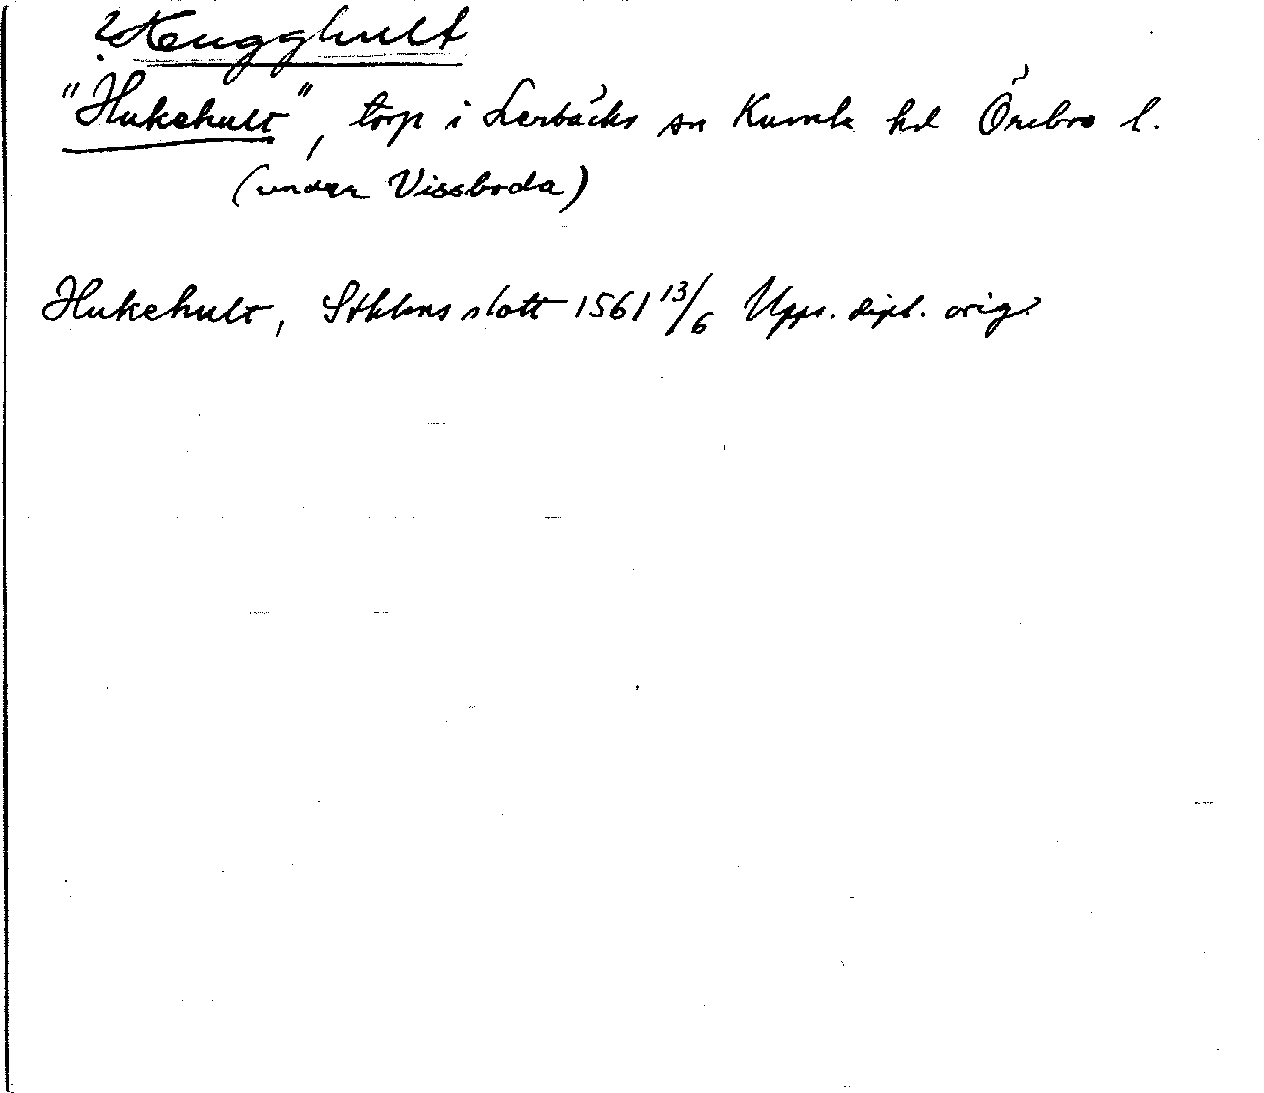 ? Hugghult
"Hukehult", torp i Lerbäcks sn Kumla hd Örebro l.
(under Vissboda)
Hukehult, Sthlms slott 1561 13/6 Upps. dipl. orig.